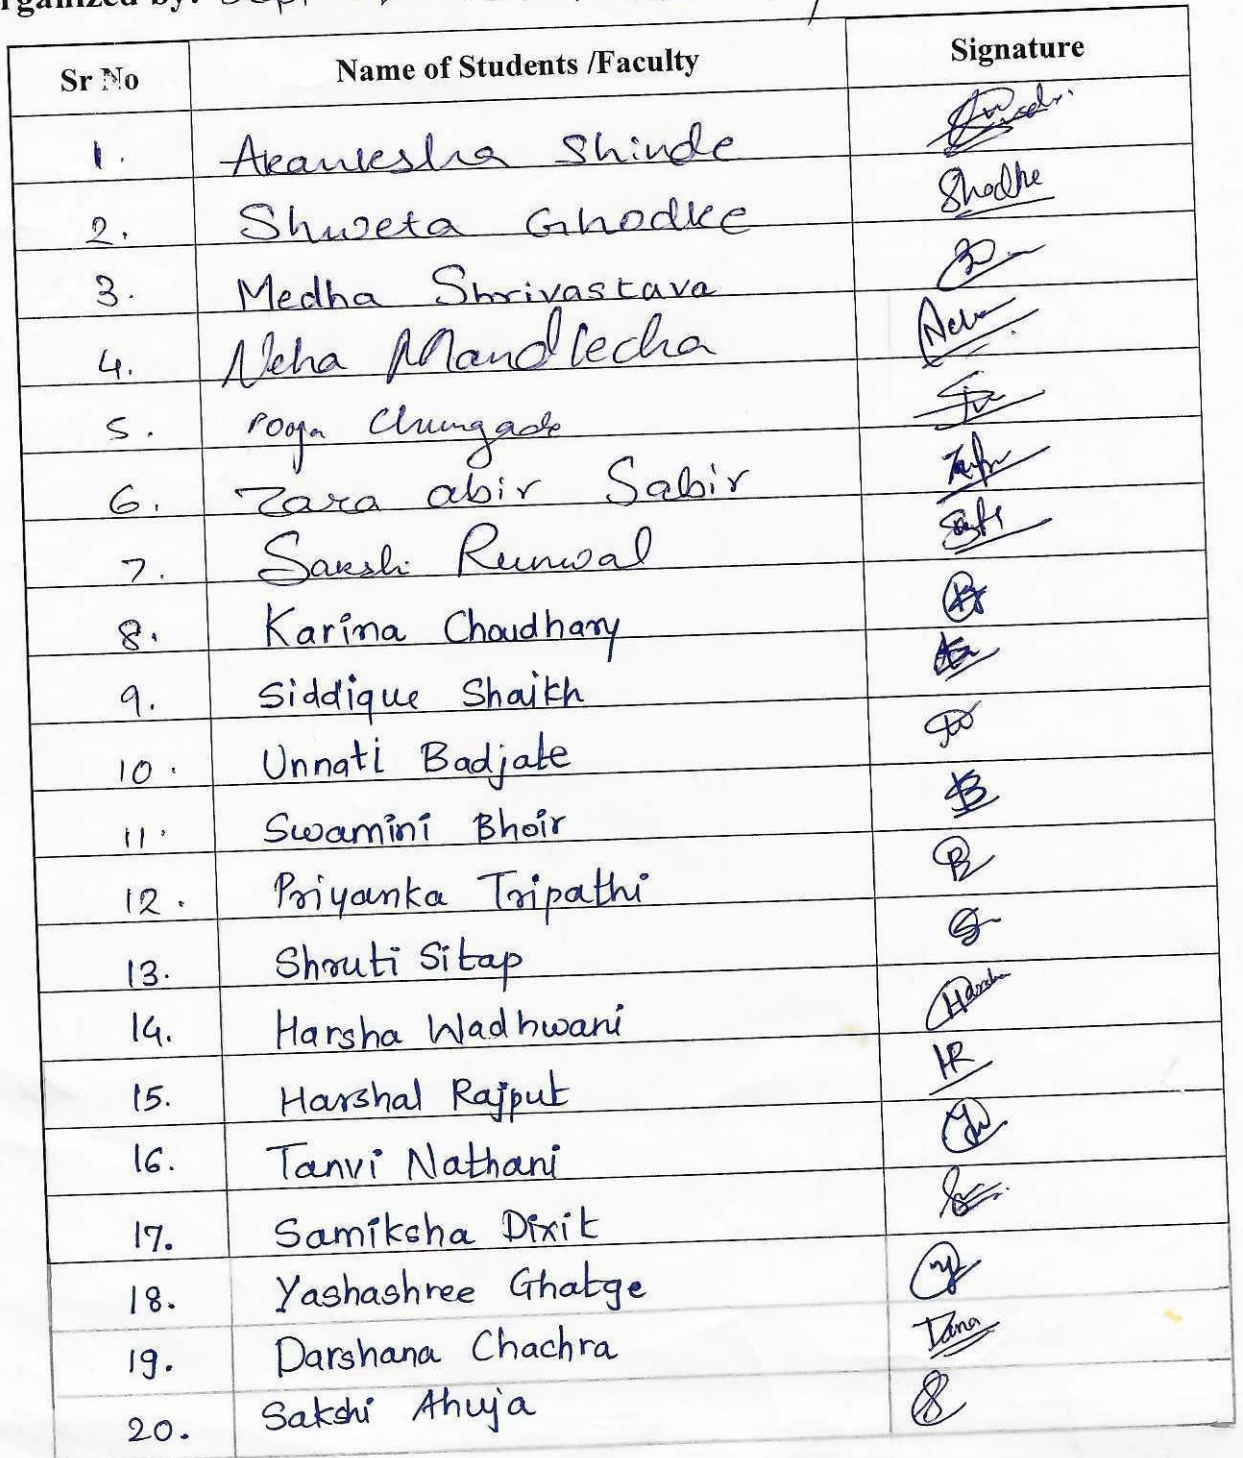 rganized by:
Sr No Name of Students /Faculty Signature
1. Akanksha Shinde
2. Shweta Ghodke Shodke
3. Medha Shrivastava
4. Neha Mandlecha Neha
5. Pooja Chungade
6. Zara abir Sabir
7. Sakshi Runwal
8. Karina Choudhary
9. Siddique Shaikh
10. Unnati Badjate
11. Swamini Bhoir
12. Priyanka Tripathi
13. Shruti Sitap
14. Harsha Wadhwani Harsha
15. Harshal Rajput HR
16. Tanvi Nathani
17. Samiksha Dixit
18. Yashashree Ghatge
19. Darshana Chachra
20. Sakshi Ahuja